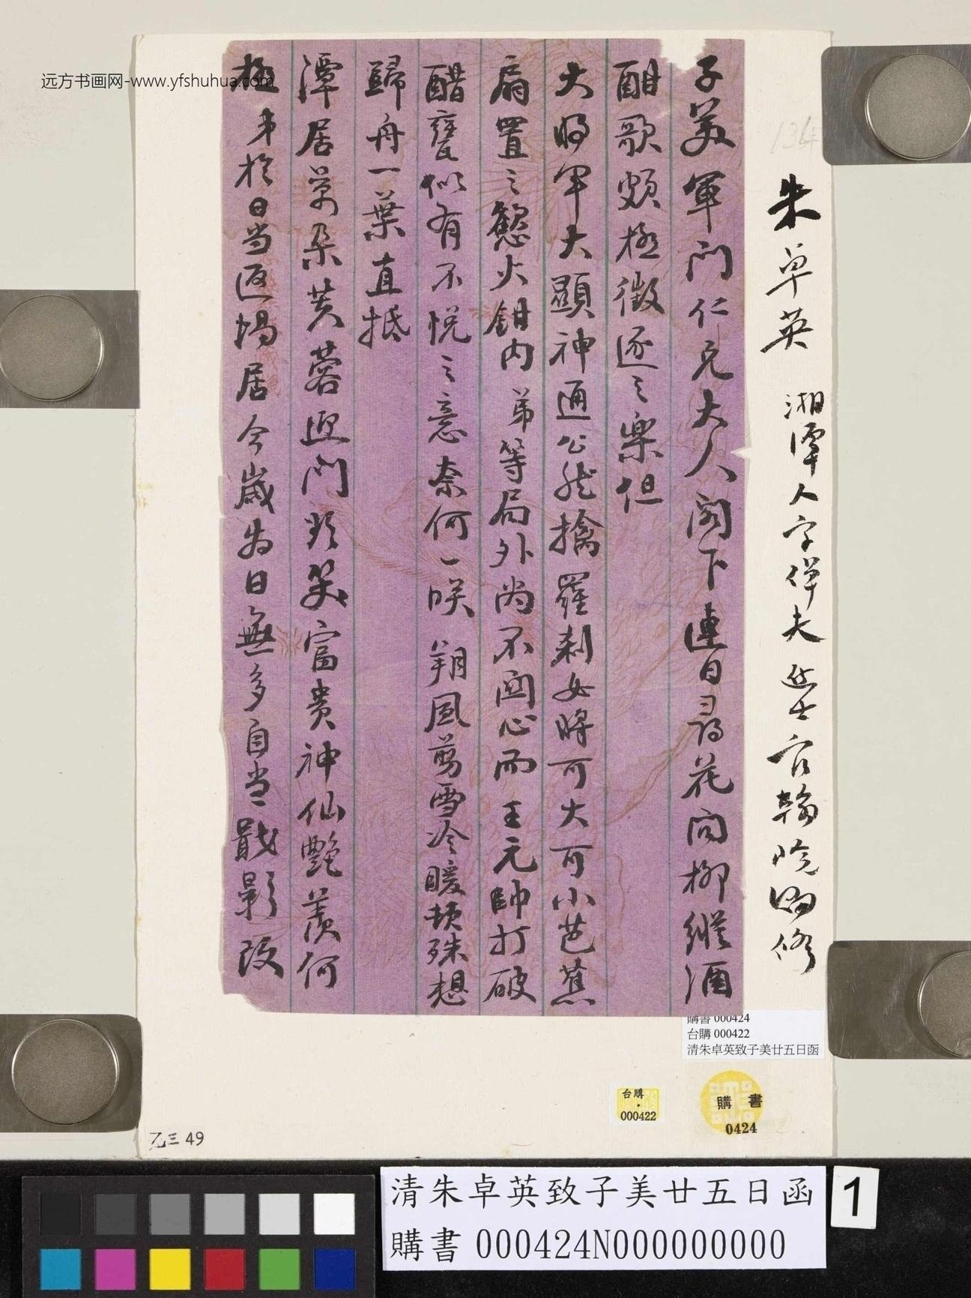 远方书画网-www.yfshuhua.com
朱卓英 湘潭人字倬夫 進士官翰院編修
子美軍門仁兄大人閣下連日尋花問柳縱酒
酣歌頗極徵逐之樂但
大將軍大顯神通公然擒羅剎女將可大可小芭蕉
扇置之慾火鉗內弟等局外尚不關心而王元帥打破
醋甕似有不悅之意奈何一咲朔風剪雪冷暖頓殊想
歸舟一葉直抵
潭居萬朵芙蓉迎門欢笑富貴神仙艷羨何
極弟於日當返塲居今歲為日無多自當戢影改
購書 000424
台購 000422
清朱卓英致子美廿五日函
台購
000422
購書
0424
乙三 49
清朱卓英致子美廿五日函
購書 000424N000000000
1